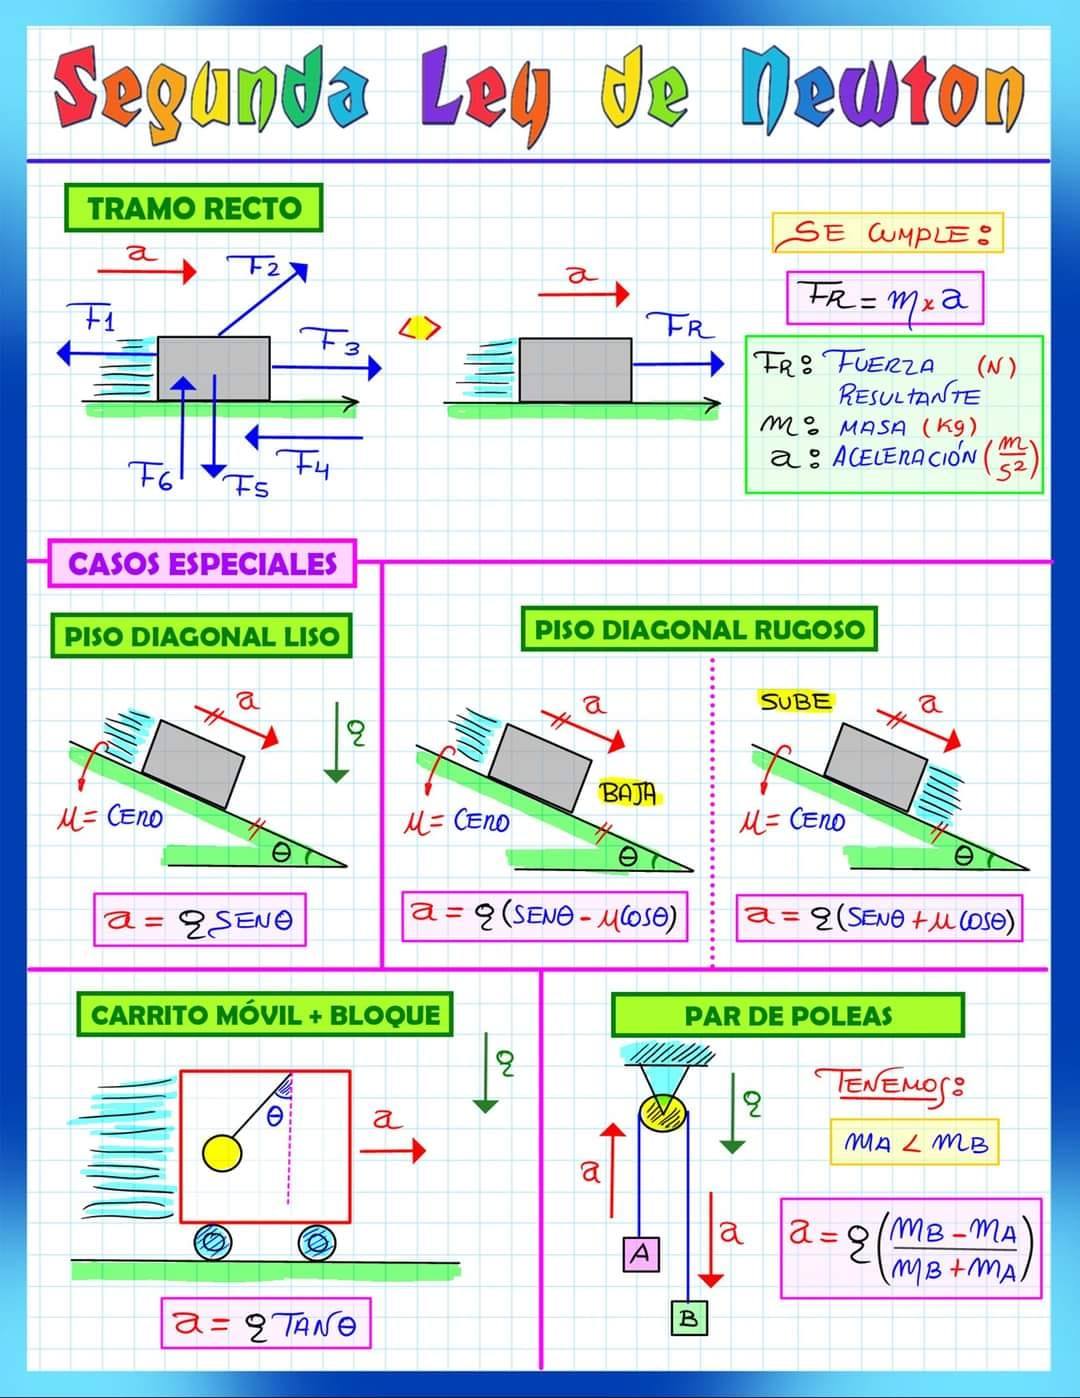 Segunda Ley de Newton
TRAMO RECTO
a
F2
F1
F3
F6
F5
F4
<>
a
FR
SE CUMPLE:
FR = m x a
FR: FUERZA (N)
RESULTANTE
m: MASA (Kg)
a: ACELERACIÓN (m/s²)
CASOS ESPECIALES
PISO DIAGONAL LISO
a
g
μ = CERO
θ
a = g SENθ
PISO DIAGONAL RUGOSO
a
BAJA
μ = CERO
θ
a = g (SENθ - μCOSθ)
SUBE
a
μ = CERO
θ
a = g (SENθ + μCOSθ)
CARRITO MÓVIL + BLOQUE
g
θ
a
a = g TANθ
PAR DE POLEAS
g
a
a
A
B
TENEMOS:
mA < mB
a = g (mB - mA / mB + mA)